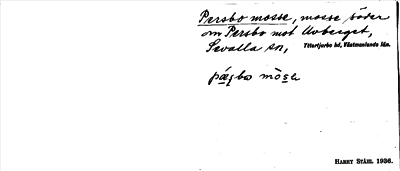 Persbo mosse, mosse söder
om Persbo mot Avberget,
Sevalla sn, Yttertjurbo hd, Västmanlands län.
pæʂbo mòsɛ
HARRY STÅHL 1936.